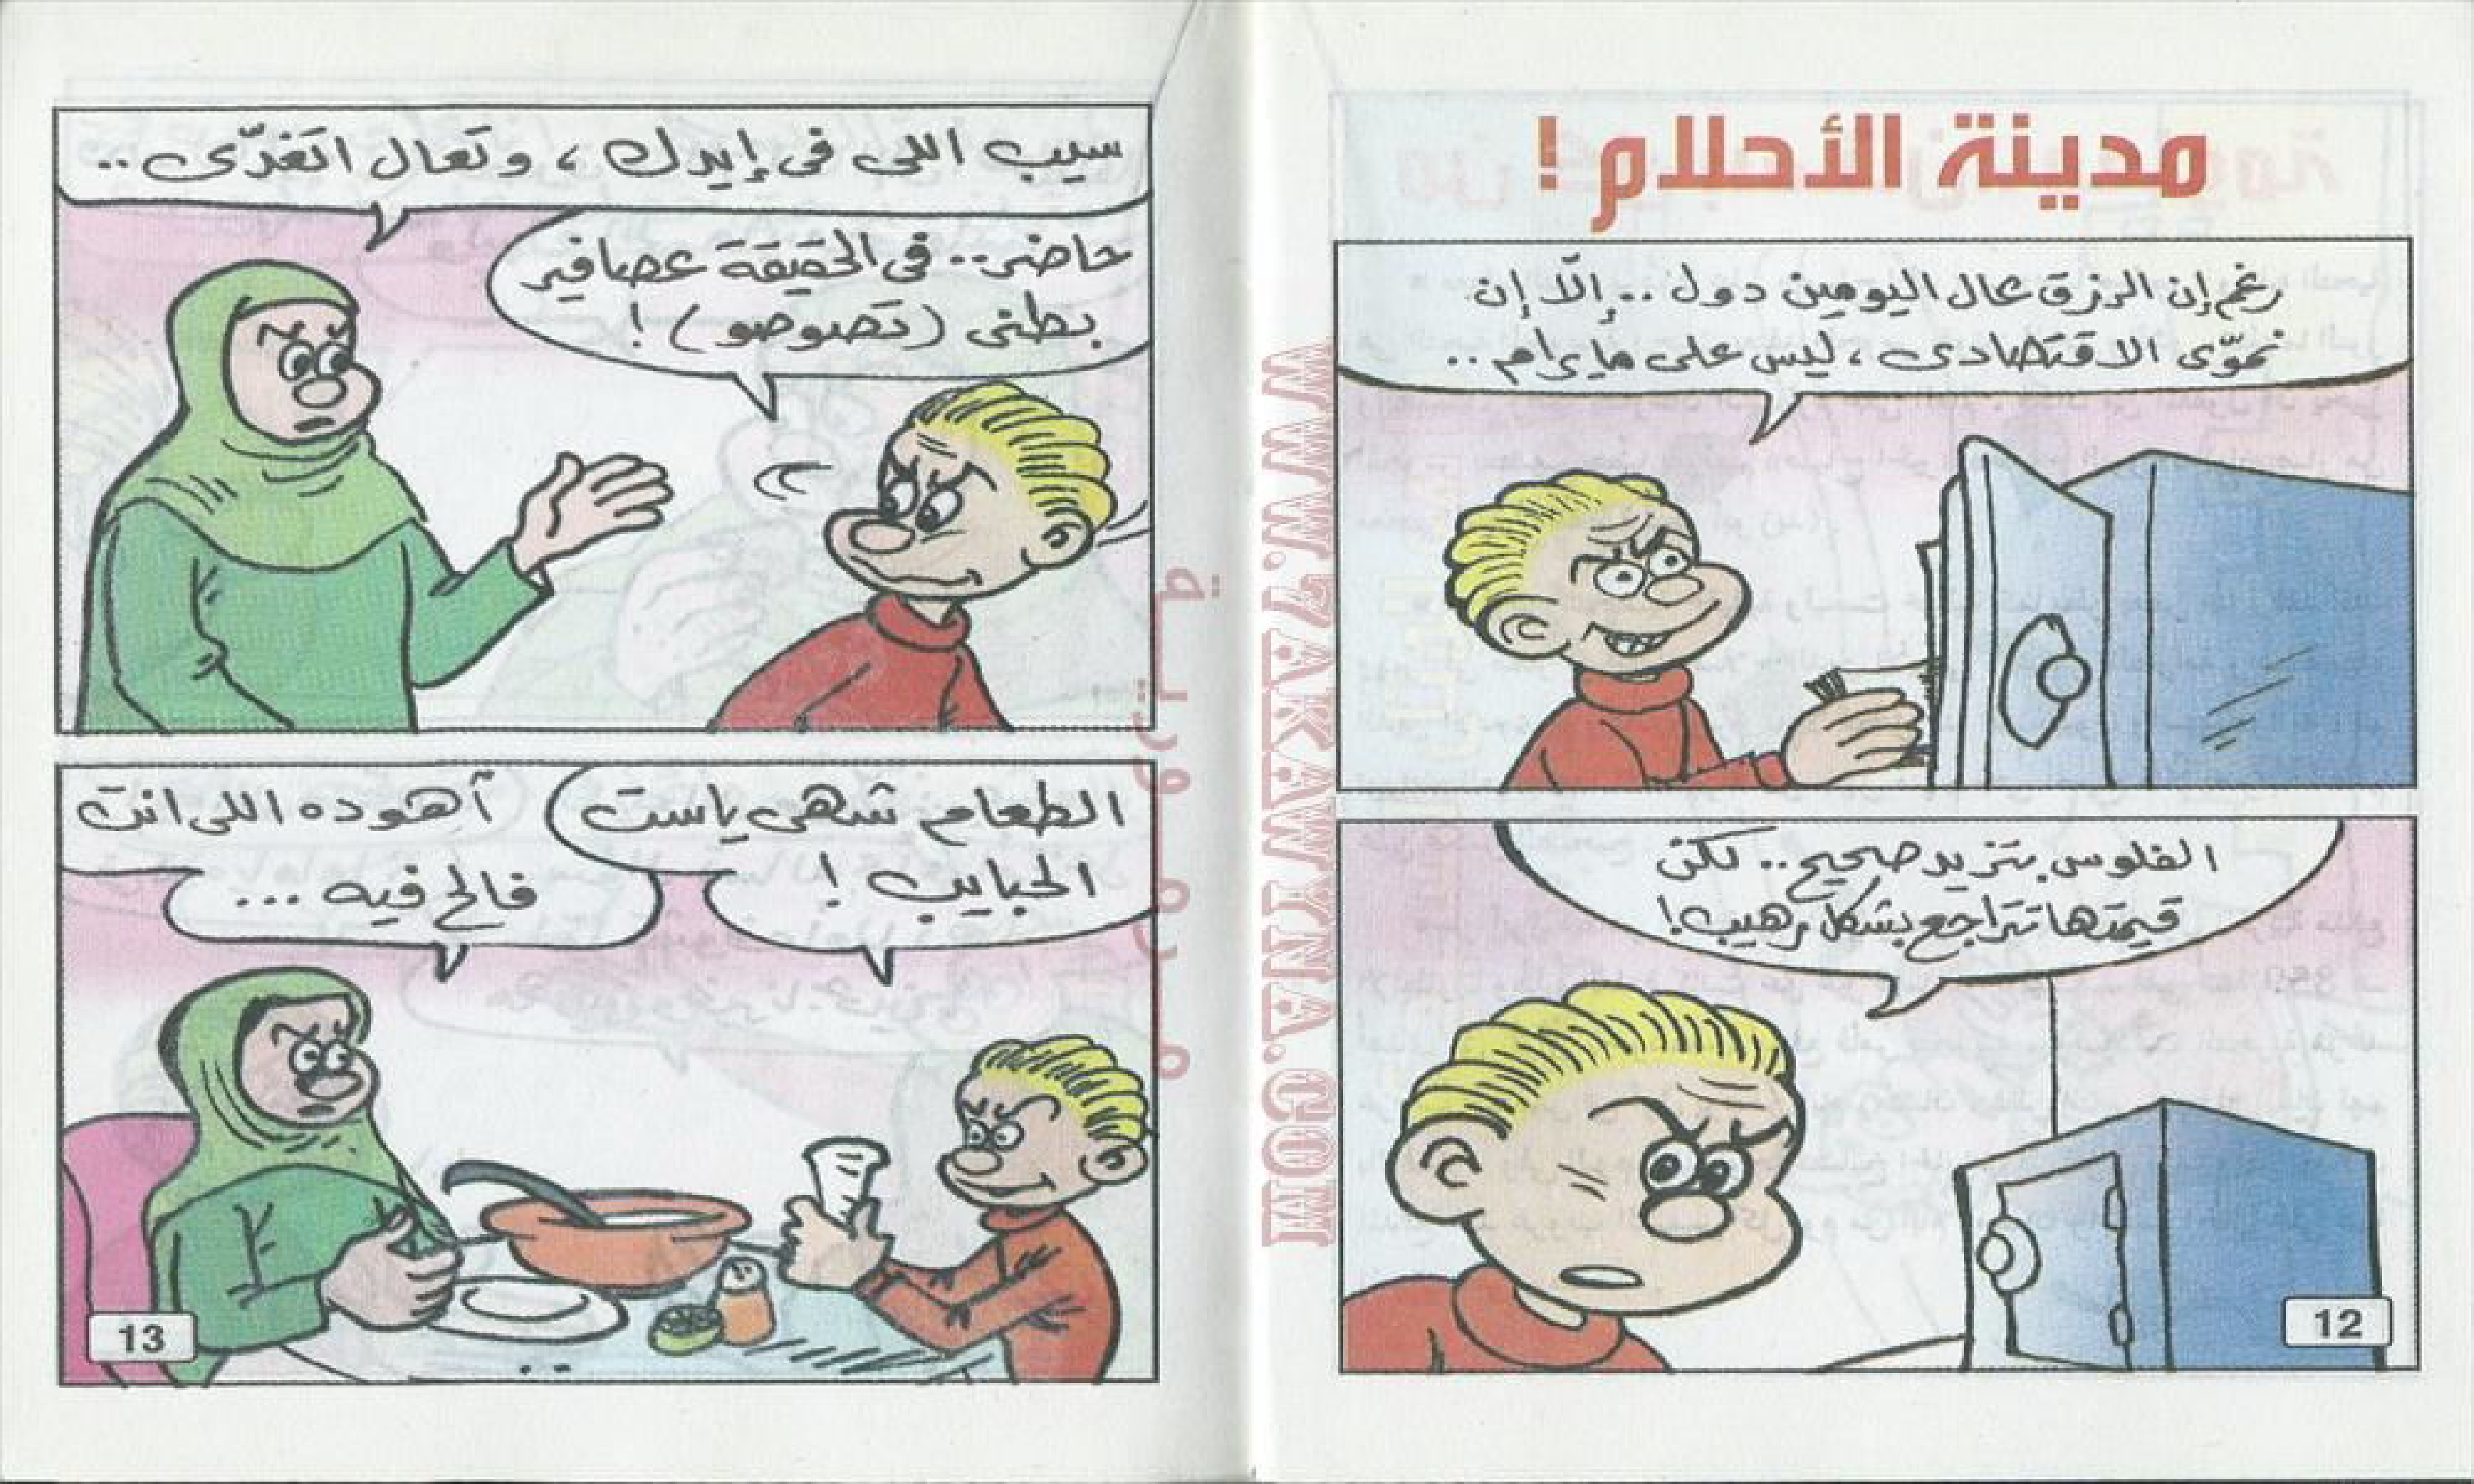 مدينة الأحلام !
رغم إن الرزق عال اليومين دول .. إلّا إن
نموّى الاقتصادى ، ليس على ما يرام ..
الفلوس بتزيد صحيح .. لكن
قيمتها تتراجع بشكل رهيب !
12
سيب اللى فى إيدك ، وتعال اتغدّى ..
حاضر .. فى الحقيقة عصافير
بطنى ( تصوصو ) !
الطعام شهى ياست
الحبايب !
آهوده اللى انت
فالح فيه ...
13
WWW.7AKAWYNA.COM